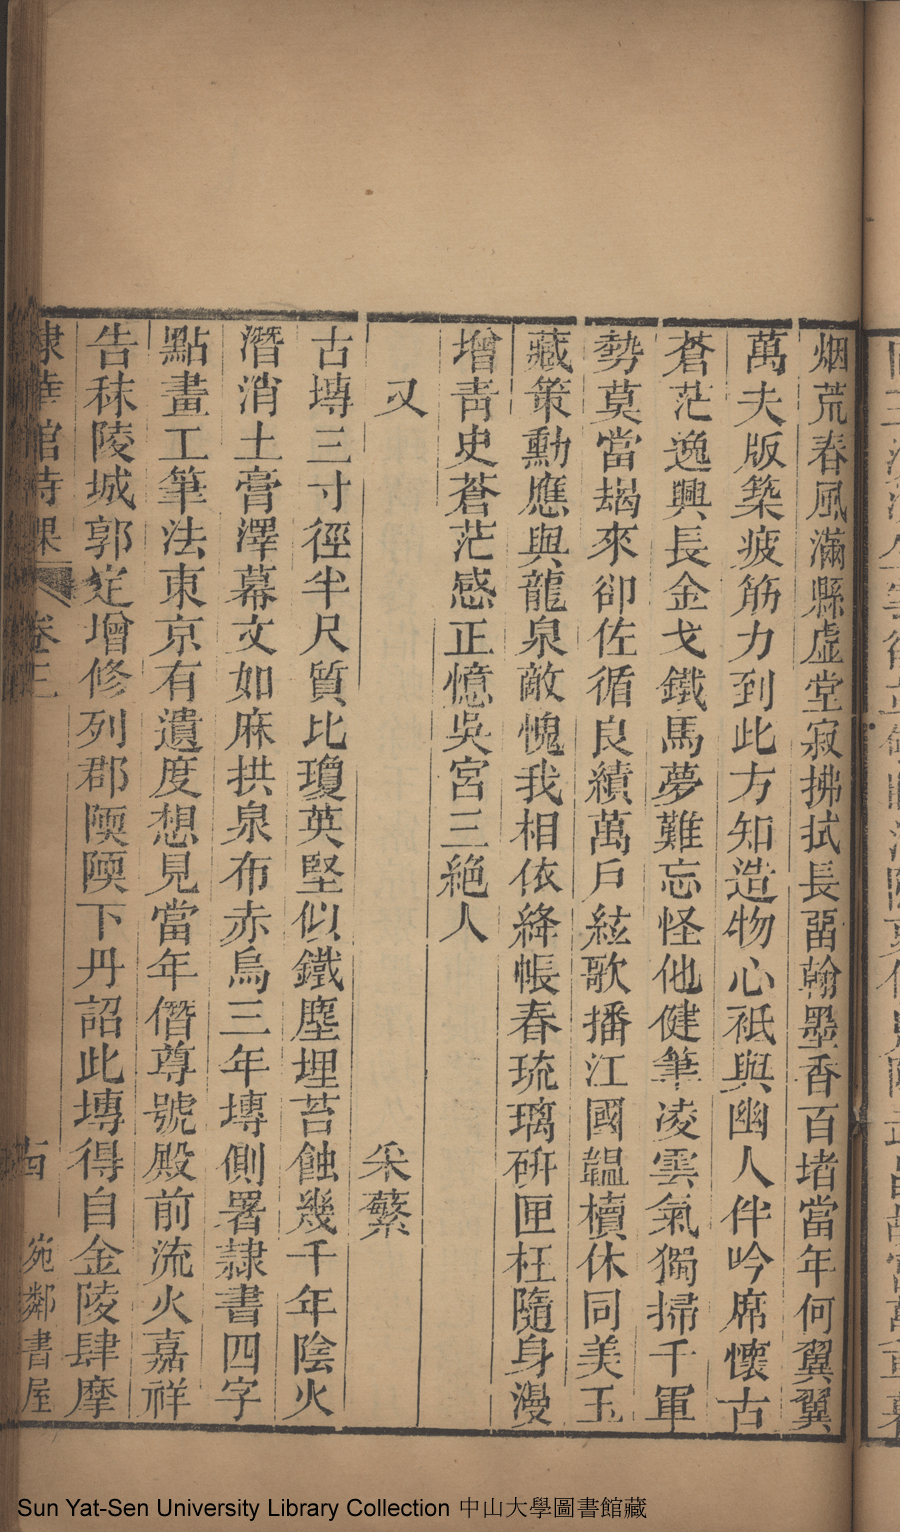 烟荒春風滿縣虛堂寂拂拭長畱翰墨香百堵當年何翼翼
萬夫版築疲筋力到此方知造物心祗與幽人伴吟席懷古
蒼茫逸興長金戈鐵馬夢難忘怪他健筆凌雲氣獨掃千軍
勢莫當朅來卻佐循良績萬戶絃歌播江國韞櫝休同美玉
藏策勳應與龍泉敵愧我相依絳帳春琉璃硏匣枉隨身漫
增靑史蒼茫感正憶吳宮三絶人
又 采蘩
古塼三寸徑半尺質比瓊英堅似鐵塵埋苔蝕幾千年陰火
潛消土膏澤幕文如麻拱泉布赤烏三年塼側署隷書四字
點畫工筆法東京有遺度想見當年僭尊號殿前流火嘉祥
告秣陵城郭定增修列郡陾陾下丹詔此塼得自金陵肆摩
棣華館詩課 卷三 古 宛鄰書屋
Sun Yat-Sen University Library Collection 中山大學圖書館藏